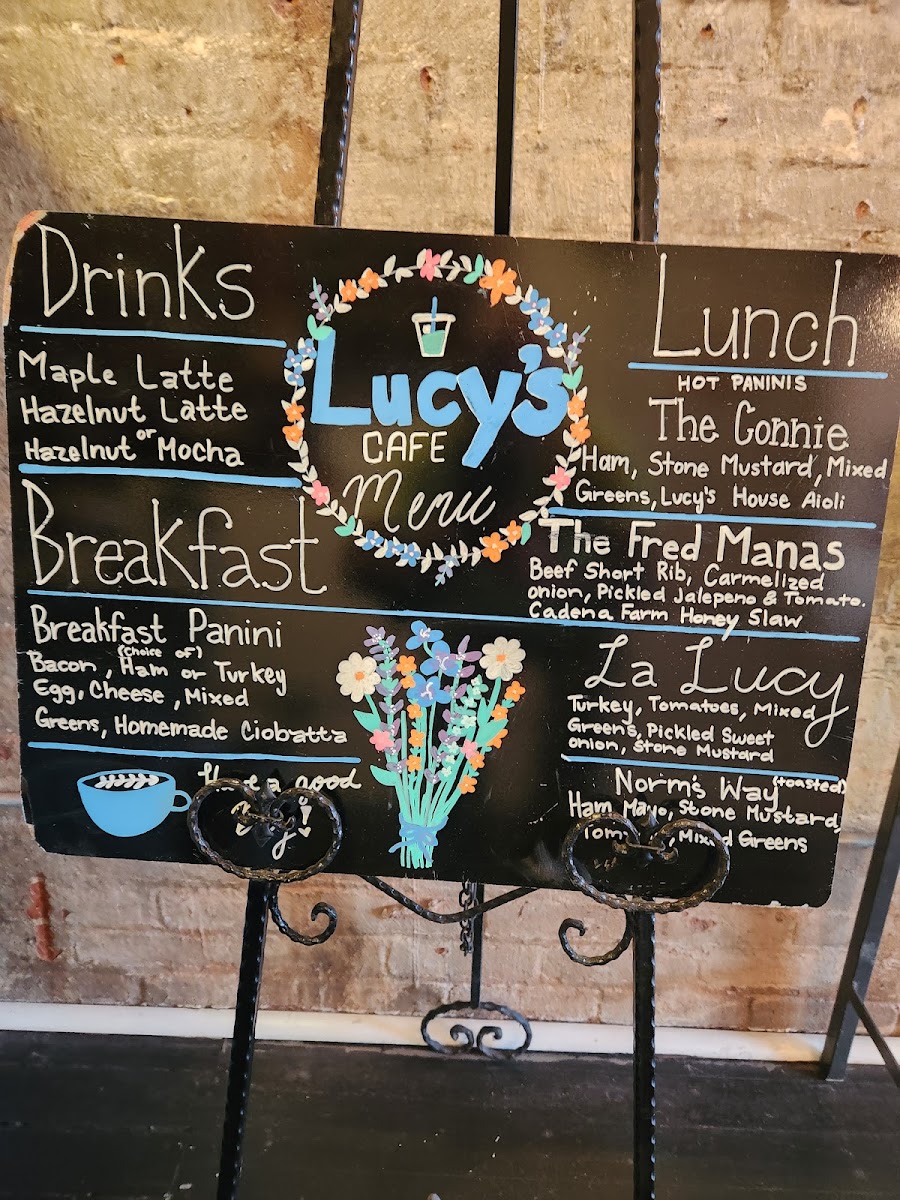 Drinks
Maple Latte
Hazelnut Latte
or
Hazelnut Mocha
Breakfast
Breakfast Panini
(choice of)
Bacon, Ham or Turkey
Egg, Cheese, Mixed
Greens, Homemade Ciobatta
a good
Lucy's
CAFE
Menu
Lunch
HOT PANINIS
The Connie
Ham, Stone Mustard, Mixed
Greens, Lucy's House Aioli
The Fred Manas
Beef Short Rib, Carmelized
onion, Pickled Jalepeno & Tomato.
Cadena Farm Honey Slaw
La Lucy
Turkey, Tomatoes, Mixed
Greens, Pickled Sweet
onion, Stone Mustard
Norm's Way (toasted)
Ham, Mayo, Stone Mustard,
Mixed Greens